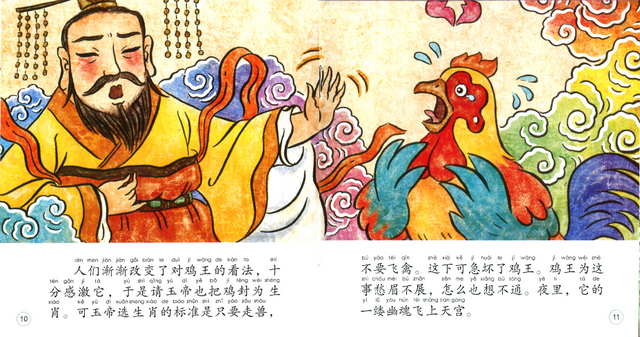 rén men jiàn jiàn gǎi biàn le duì jī wáng de kàn fǎ shí
人们渐渐改变了对鸡王的看法，十
fēn gǎn jī tā yú shì qǐng yù dì yě bǎ jī fēng wéi shēng
分感激它，于是请玉帝也把鸡封为生
xiào kě yù dì xuǎn shēng xiào de biāo zhǔn shì zhǐ yào zǒu shòu
肖。可玉帝选生肖的标准是只要走兽，
10
bú yào fēi qín zhè xià kě jí huài le jī wáng jī wáng wèi zhè
不要飞禽。这下可急坏了鸡王。鸡王为这
shì chóu méi bù zhǎn zěn me yě xiǎng bù tōng yè lǐ tā de
事愁眉不展，怎么也想不通。夜里，它的
yì lǚ yōu hún fēi shàng tiān gōng
一缕幽魂飞上天宫。
11